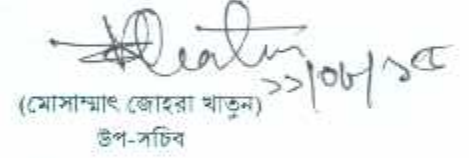 ১১/০৮/১৫
(মোসাম্মাৎ জোহরা খাতুন)
উপ-সচিব